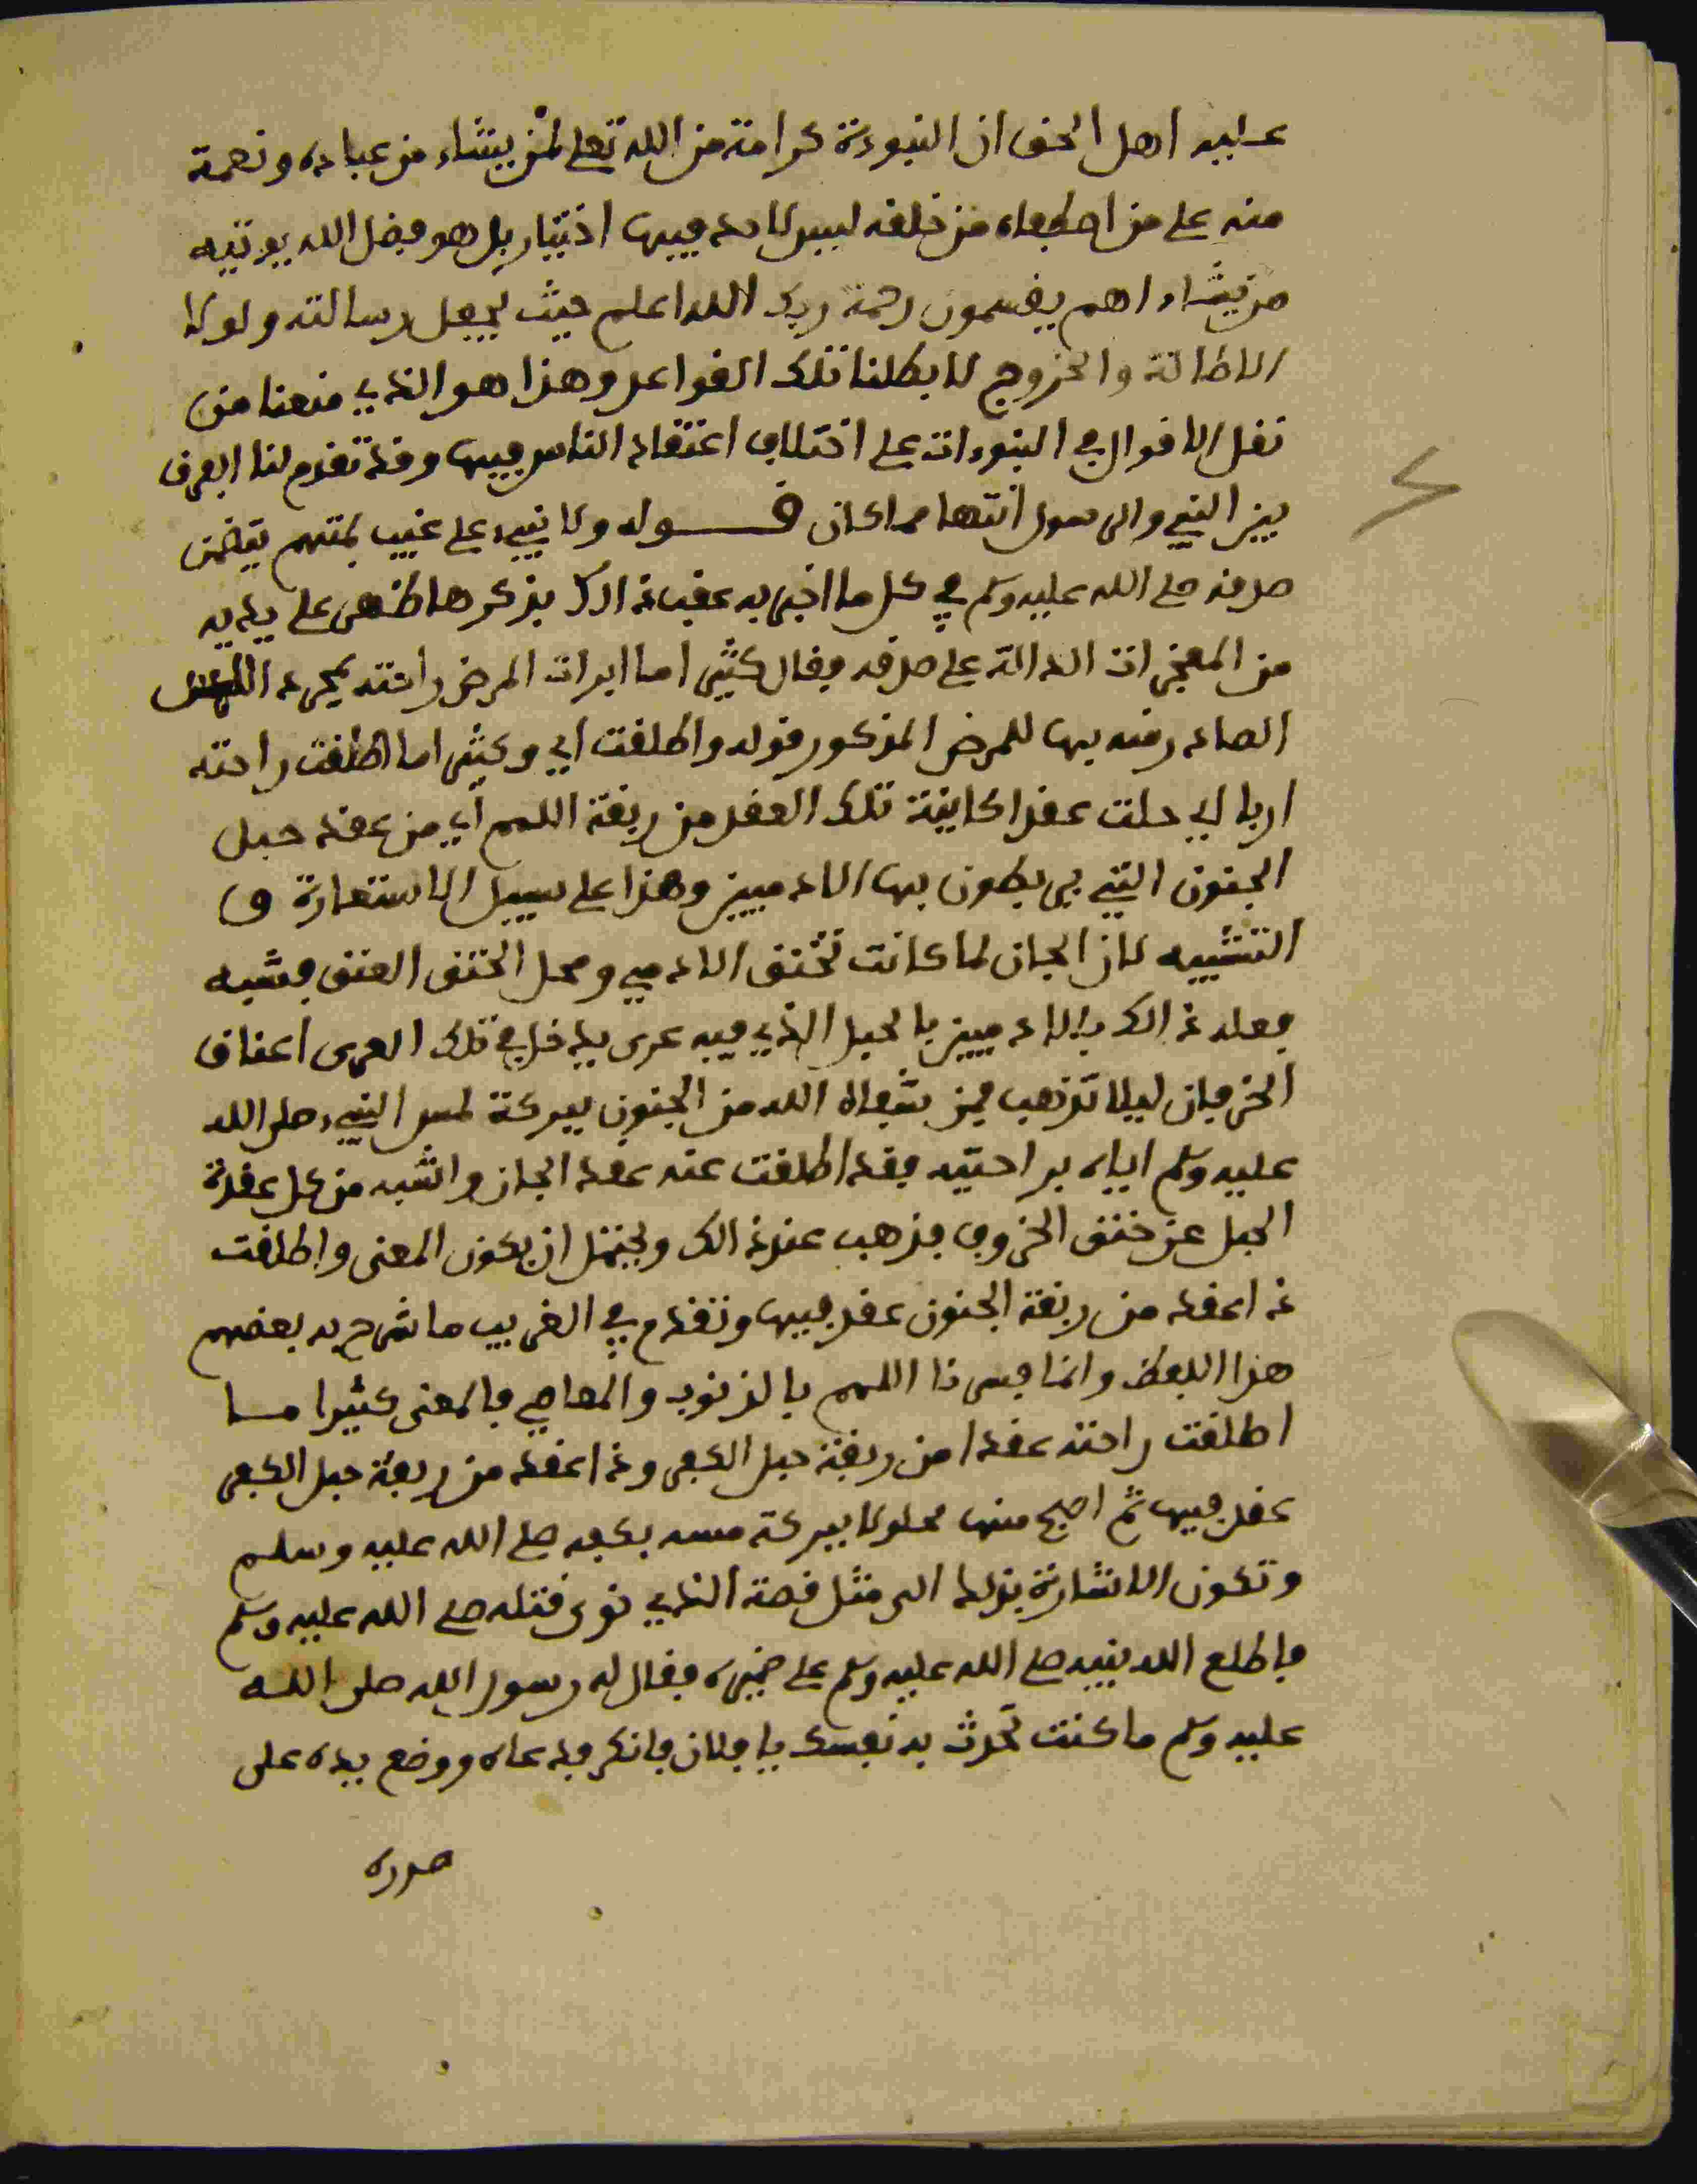 عليه اهل الحق ان النبوءة كرامة من الله تعلى لمن يشاء من عباده ونعمة
منه على من اصطفاه من خلقه ليس لاحد فيها اختيار بل هو فضل الله يوتيه
من يشاء اهم يقسمون رحمة ربك الله اعلم حيث يجعل رسالته ولولا
الاطالة والخروج لابطلنا تلك القواعد وهذا هو الذي منعنا من
نقل الاقوال في النبوءات على اختلاف اعتقاد الناس فيها وقد تقدم لنا الفرق
بين النبي والرسول انتها مما كان قوله ولا نبيء على غيب بمتهم يتضمن
صدقه صلى الله عليه وسلم في كل ما اخبر به عقب ذالك بذكر ما ظهر على يديه
من المعجزات الدالة على صدقه فقال كثيرا ما ابرات المرض راحته بمجرد اللمس
الصادر منه بها للمرض المذكور قوله واطلقت اي وكثيرا ما اطلقت راحته
اربا اي حلت عقدا كاينة تلك العقد من ربقة اللمم اي من عقد حبل
الجنون التي يربطون بها الادميين وهذا على سبيل الاستعارة و
التشبيه لان الجان لما كانت تخنق الادمي ومحل الخنق العنق فشبه
فعله ذالك بالادميين بالحبل الذي فيه عرى يدخل في تلك العرى اعناق
الخرفان ليلا تذهب فمن شفاه الله من الجنون ببركة لمس النبيء صلى الله
عليه وسلم اياه براحتيه فقد اطلقت عنه عقد الجان واشبه من حل عقدة
الحبل عن خنق الخروف فذهب عند ذالك ويحتمل ان يكون المعنى واطلقت
ذا عقد من ربقة الجنون عقد فيها وتقدم في الغريب ما شرح به بعضهم
هذا اللفظ وانما فسرنا اللمم بالذنوب والمعاصي فالمعنى كثيرا ما
اطلقت راحته عقدا من ربقة حبل الكفر وذا عقد من ربقة حبل الكفر
عقد فيها ثم اصبح منها محلولا ببركة مسه بكفه صلى الله عليه وسلم
وتكون الاشارة بذلك الى مثل قصة الذي نوى قتله صلى الله عليه وسلم
فاطلع الله نبيه صلى الله عليه وسلم على ضميره فقال له رسول الله صلى الله
عليه وسلم ما كنت تحدث به نفسك يا فلان فانكر فدعاه ووضع يده على
صدره